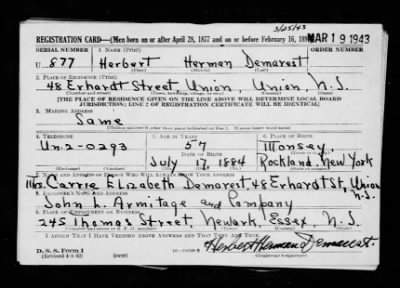 3/25/43
REGISTRATION CARD—(Men born on or after April 28, 1877 and on or before February 16, 189
MAR 19 1943
SERIAL NUMBER 1. NAME (Print) ORDER NUMBER
U 877 Herbert Herman Demarest
(First) (Middle) (Last)
2. PLACE OF RESIDENCE (Print)
48 Erhardt Street Union, Union, N.J.
(Number and street) (Town, township, village, or city) (County) (State)
[THE PLACE OF RESIDENCE GIVEN ON THE LINE ABOVE WILL DETERMINE LOCAL BOARD
JURISDICTION; LINE 2 OF REGISTRATION CERTIFICATE WILL BE IDENTICAL]
3. MAILING ADDRESS
Same
4. TELEPHONE 5. AGE IN YEARS 6. PLACE OF BIRTH
Un-2-0293 57 Monsey,
DATE OF BIRTH
July 17, 1884 Rockland, New York
7. NAME AND ADDRESS OF PERSON WHO WILL ALWAYS KNOW YOUR ADDRESS
Mrs. Carrie Elizabeth Demarest, 48 Erhardt St, Union N.J.
8. EMPLOYER'S NAME AND ADDRESS
John L. Armitage and Company
9. PLACE OF EMPLOYMENT OR BUSINESS
245 Thomas Street, Newark, Essex, N.J.
I AFFIRM THAT I HAVE VERIFIED ABOVE ANSWERS AND THAT THEY ARE TRUE.
D. S. S. Form 1
(Revised 4-1-42)
Herbert Herman Demarest.
(Registrant's signature)